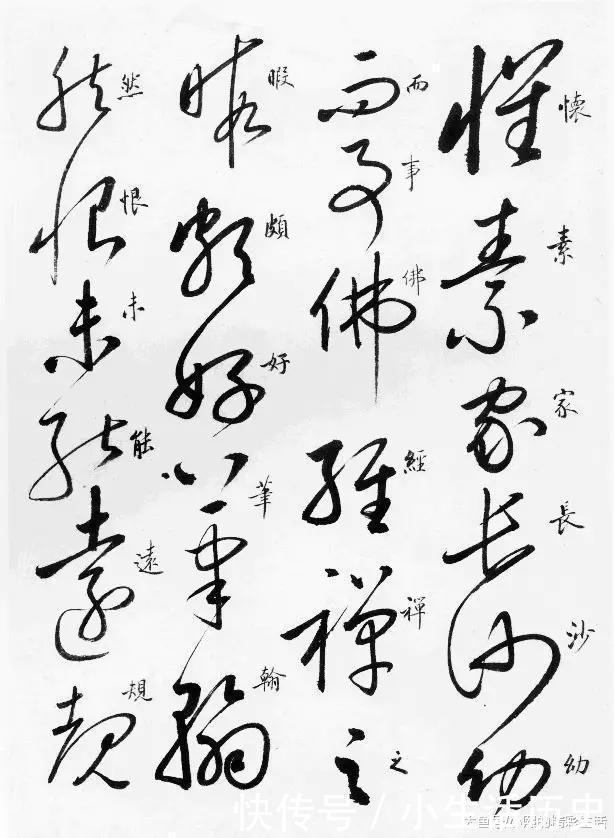 懷素家長沙幼
而事佛經禪之
暇頗好筆翰
然恨未能遠規
快传号/小生活历史